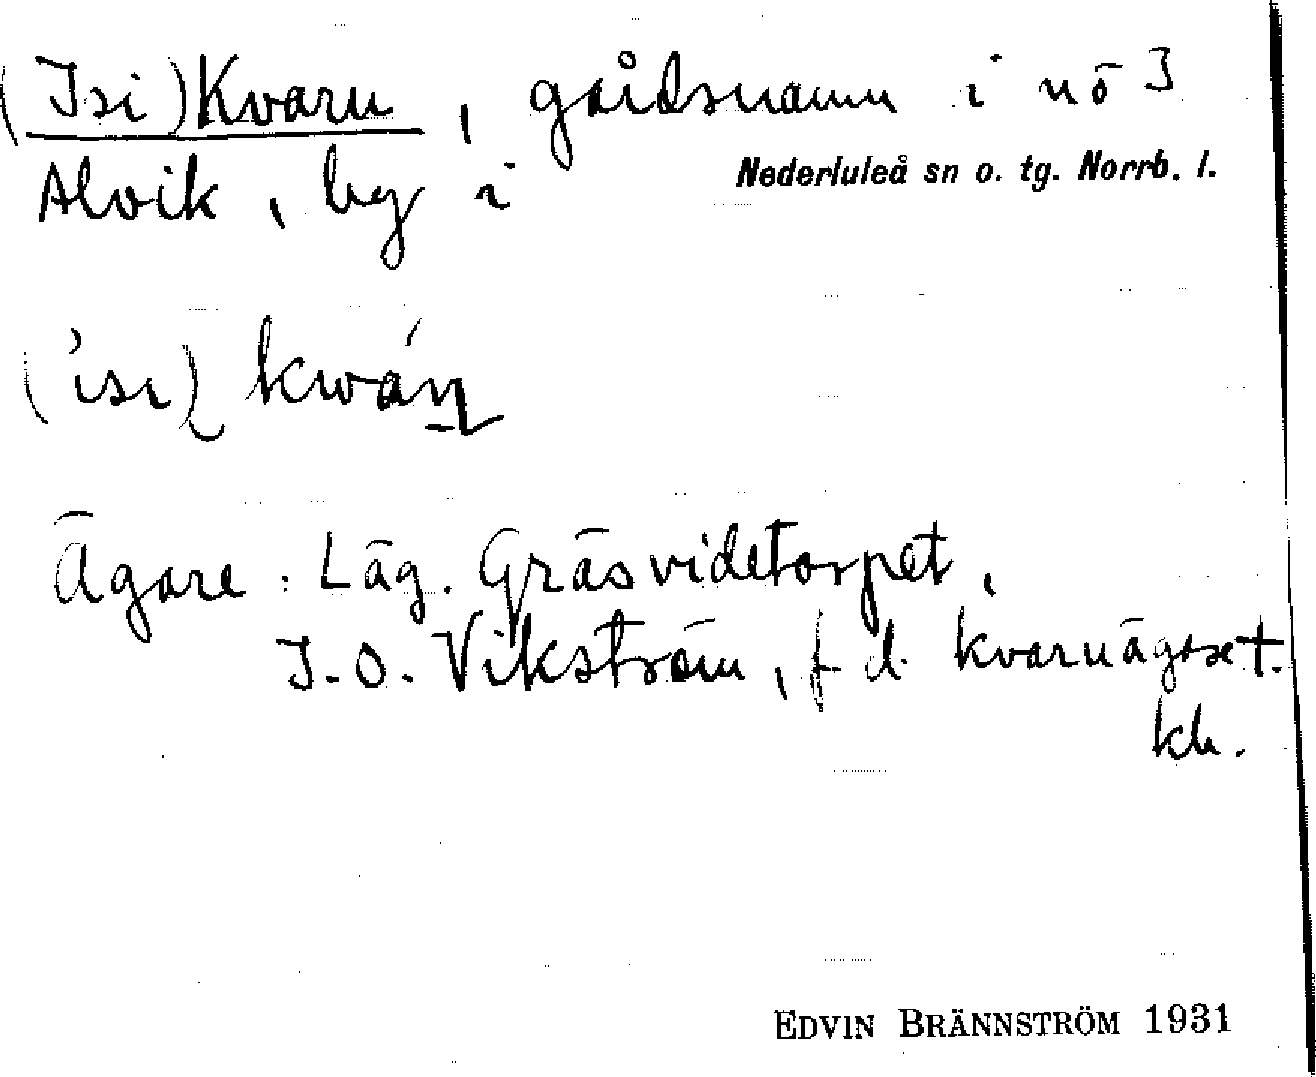 (Isi)Kvarn, gårdsnamn i nö 3
Alvik, by i Nederluleå sn o. tg. Norrb. l.
(ìsi) kwán
Ägare: Läg. Gräsvidetorpet,
J. O. Vikström, f d
EDVIN BRÄNNSTRÖM 1931